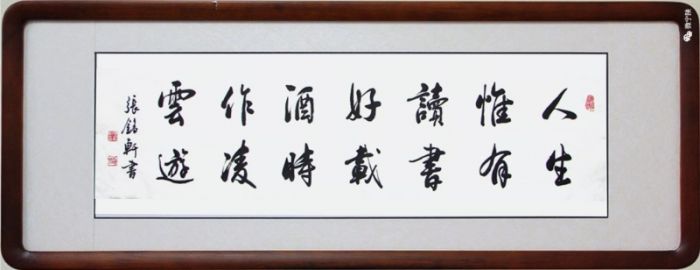 人生
惟有
讀書
好載
酒時
作凌
雲遊
張銘軒書